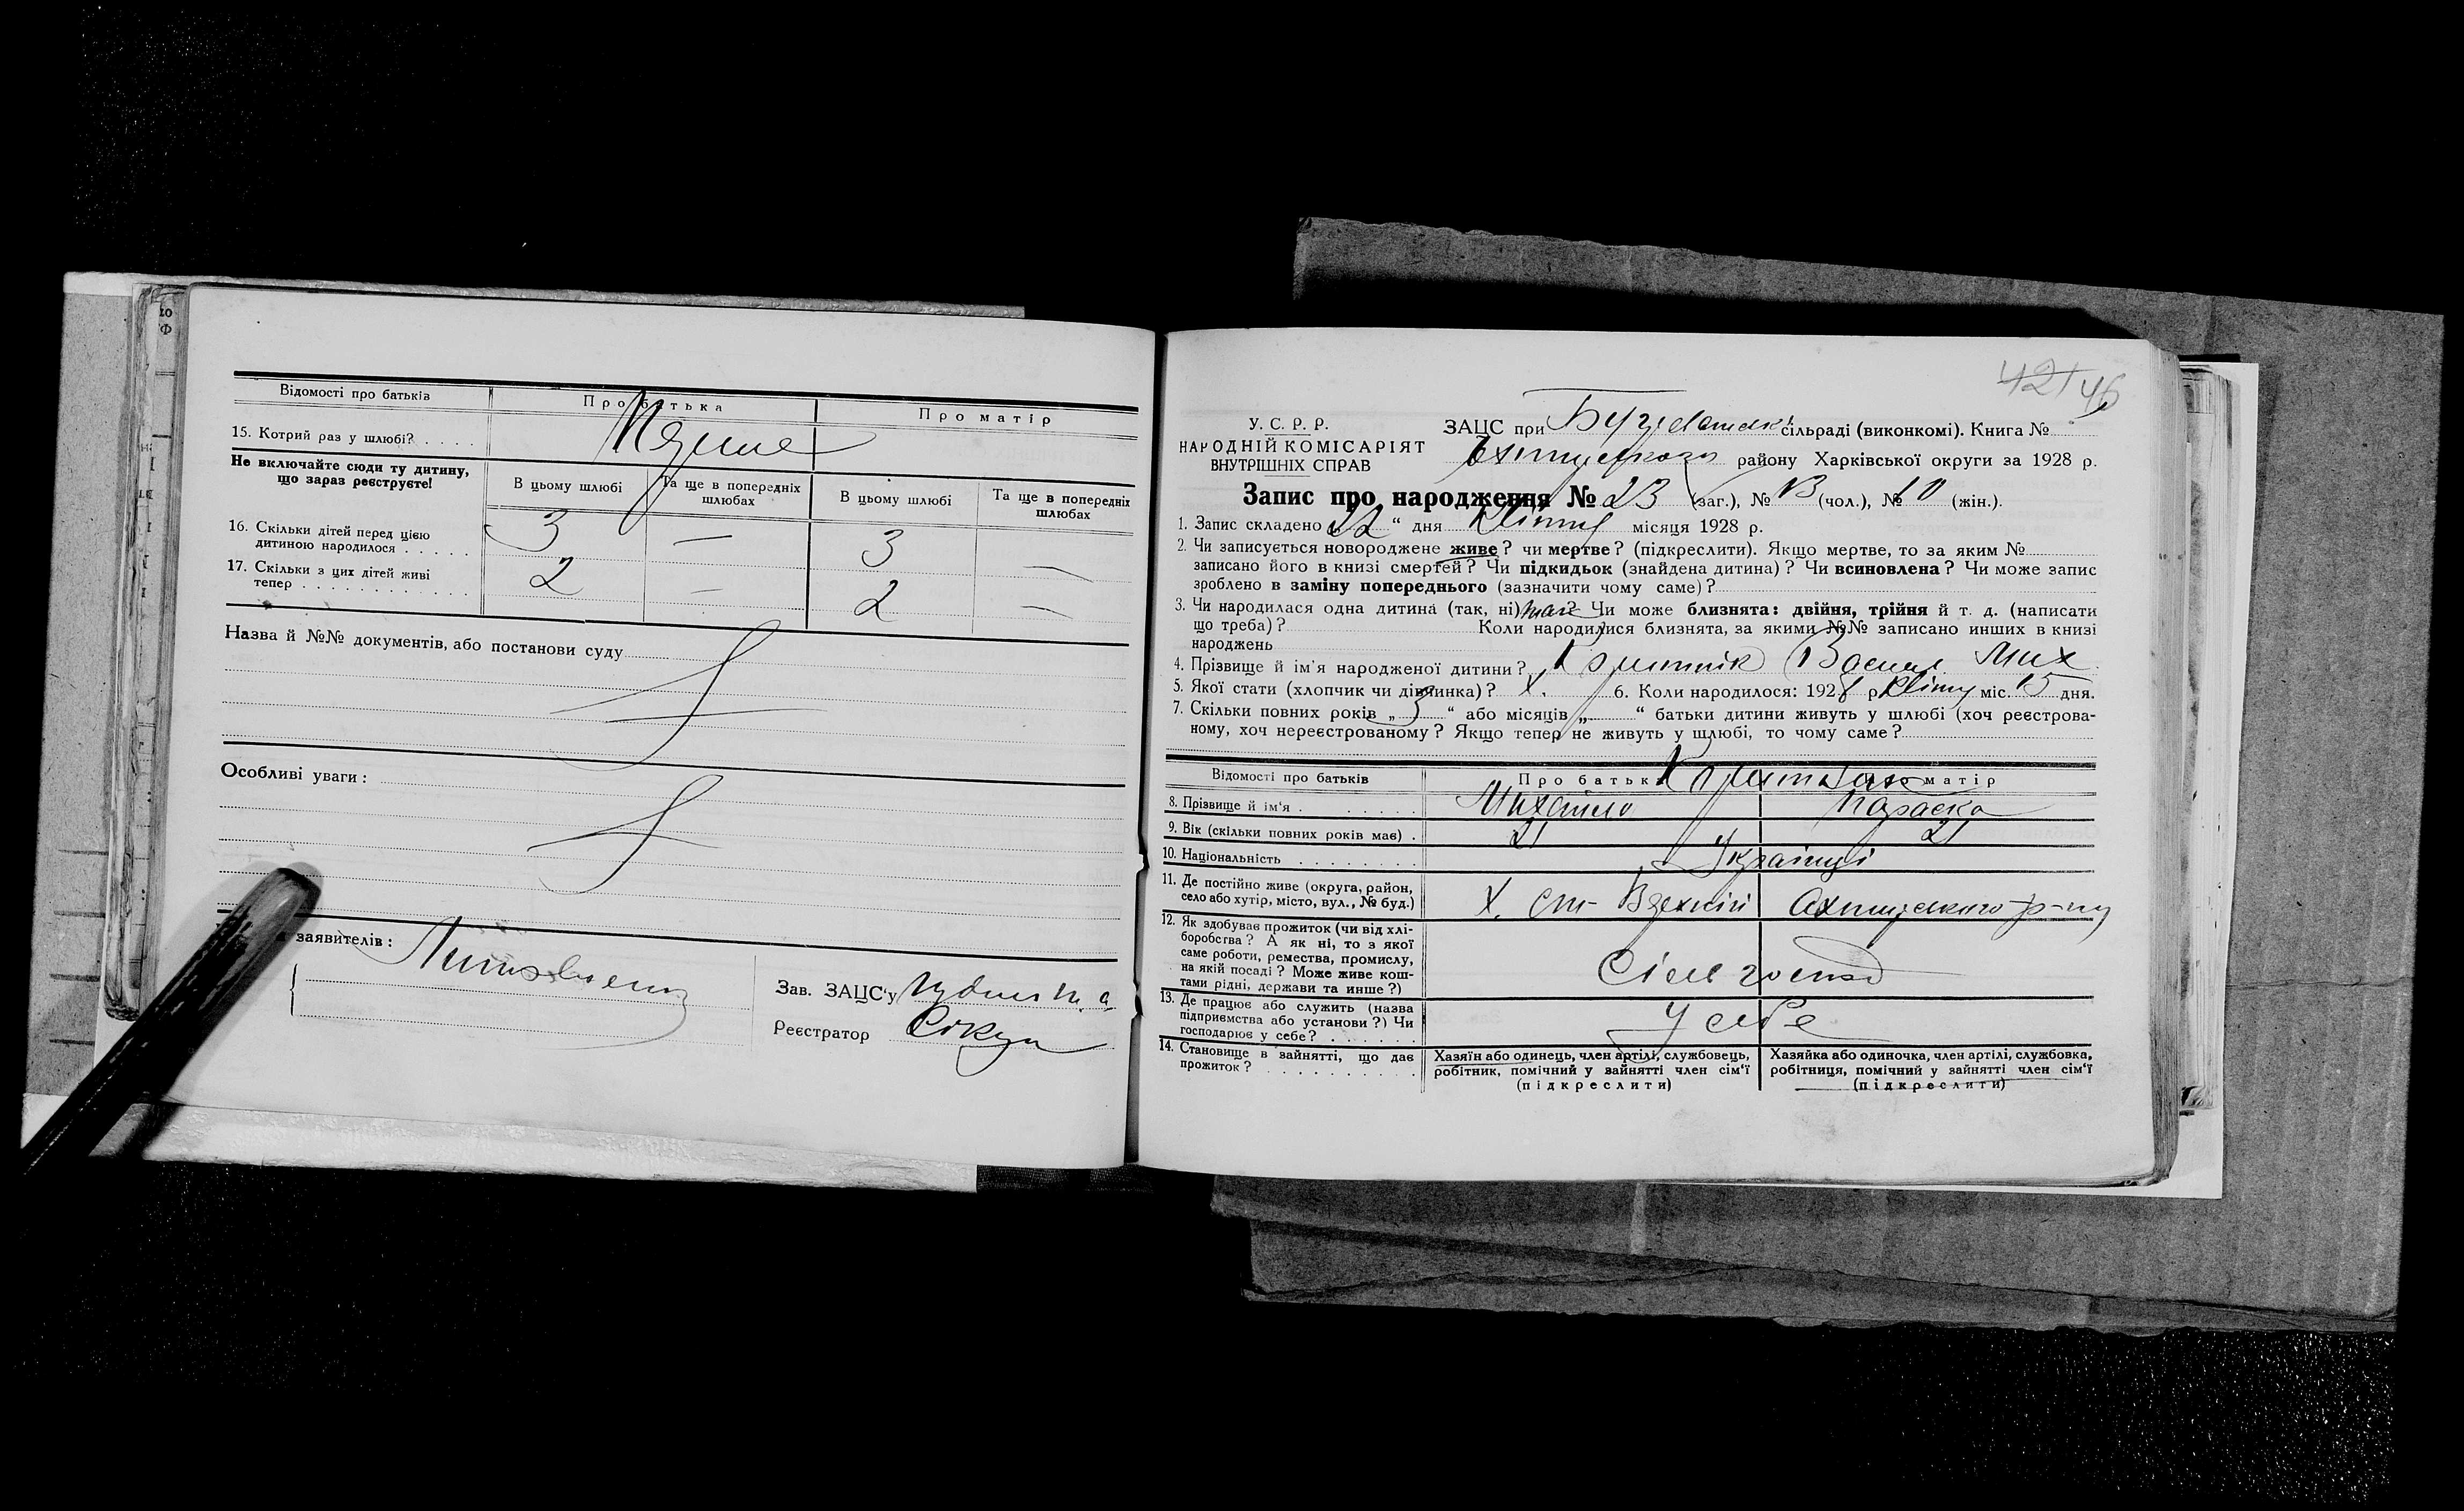 Відомості про батьків Про батька Про матір
15. Котрий раз у шлюбі? . . . .
Не включайте сюди ту дитину,
що зараз реєструєте!
В цьому шлюбі Та ще в попередніх шлюбах В цьому шлюбі Та ще в попередніх шлюбах
16. Скільки дітей перед цією
дитиною народилося . . . . . 3 — 3 —
17. Скільки з цих дітей живі
тепер . . . . . . . . . . . . 2 — 2 —
Назва й №№ документів, або постанови суду
Особливі уваги:
заявителів:
Зав. ЗАЦС'у
Реєстратор Сікун
42 46
У. С. Р. Р.
НАРОДНІЙ КОМІСАРІЯТ
ВНУТРІШНІХ СПРАВ
ЗАЦС при сільраді (виконкомі). Книга №
району Харківської округи за 1928 р.
Запис про народження № 23 (заг.), № 13 (чол.), № 10 (жін.).
1. Запис складено 22 “ дня Квітня місяця 1928 р.
2. Чи записується новороджене живе? чи мертве? (підкреслити). Якщо мертве, то за яким №
записано його в книзі смертей? Чи підкидьок (знайдена дитина)? Чи всиновлена? Чи може запис
зроблено в заміну попереднього (зазначити чому саме)?
3. Чи народилася одна дитина (так, ні) так? Чи може близнята: двійня, трійня й т. д. (написати
що треба)? Коли народилися близнята, за якими №№ записано инших в книзі
народжень
4. Прізвище й ім'я народженої дитини? Василь Мих
5. Якої стати (хлопчик чи дівчинка)? Х. 6. Коли народилося: 1928 р. Квітня міс. 15 дня.
7. Скільки повних років „ 3 “ або місяців „ “ батьки дитини живуть у шлюбі (хоч реєстрова-
ному, хоч нереєстрованому? Якщо тепер не живуть у шлюбі, то чому саме?
Відомості про батьків Про батька Про матір
8. Прізвище й ім'я . . . . . . . Михайло Параска
9. Вік (скільки повних років має) . 21 21
10. Національність . . . . . . . . Українці
11. Де постійно живе (округа, район,
село або хутір, місто, вул., № буд.) Х.
12. Як здобуває прожиток (чи від хлі-
боробства? А як ні, то з якої
саме роботи, ремества, промислу,
на якій посаді? Може живе кош-
тами рідні, держави та инше?) Сіль господ
13. Де працює або служить (назва
підприємства або установи?) Чи
господарює у себе? . . . . . . у себе
14. Становище в зайнятті, що дає
прожиток? . . . . . . . . . .
Хазяїн або одинець, член артілі, службовець,
робітник, помічний у зайнятті член сім'ї
(підкреслити)
Хазяйка або одиночка, член артілі, службовка,
робітниця, помічний у зайнятті член сім'ї
(підкреслити)